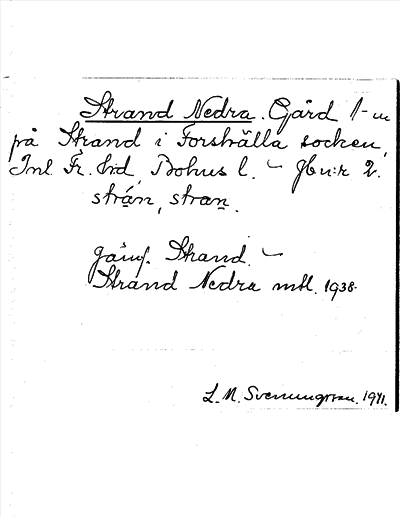 Strand Nedra. Gård 1-u
på Strand i Forshälla socken,
Inl. Fr. hrd, Bohus l. - Jbnr 2.
strán, stran.
Jämf. Strand. -
Strand Nedra mtl. 1938.
L. M. Svenungsson. 1941.